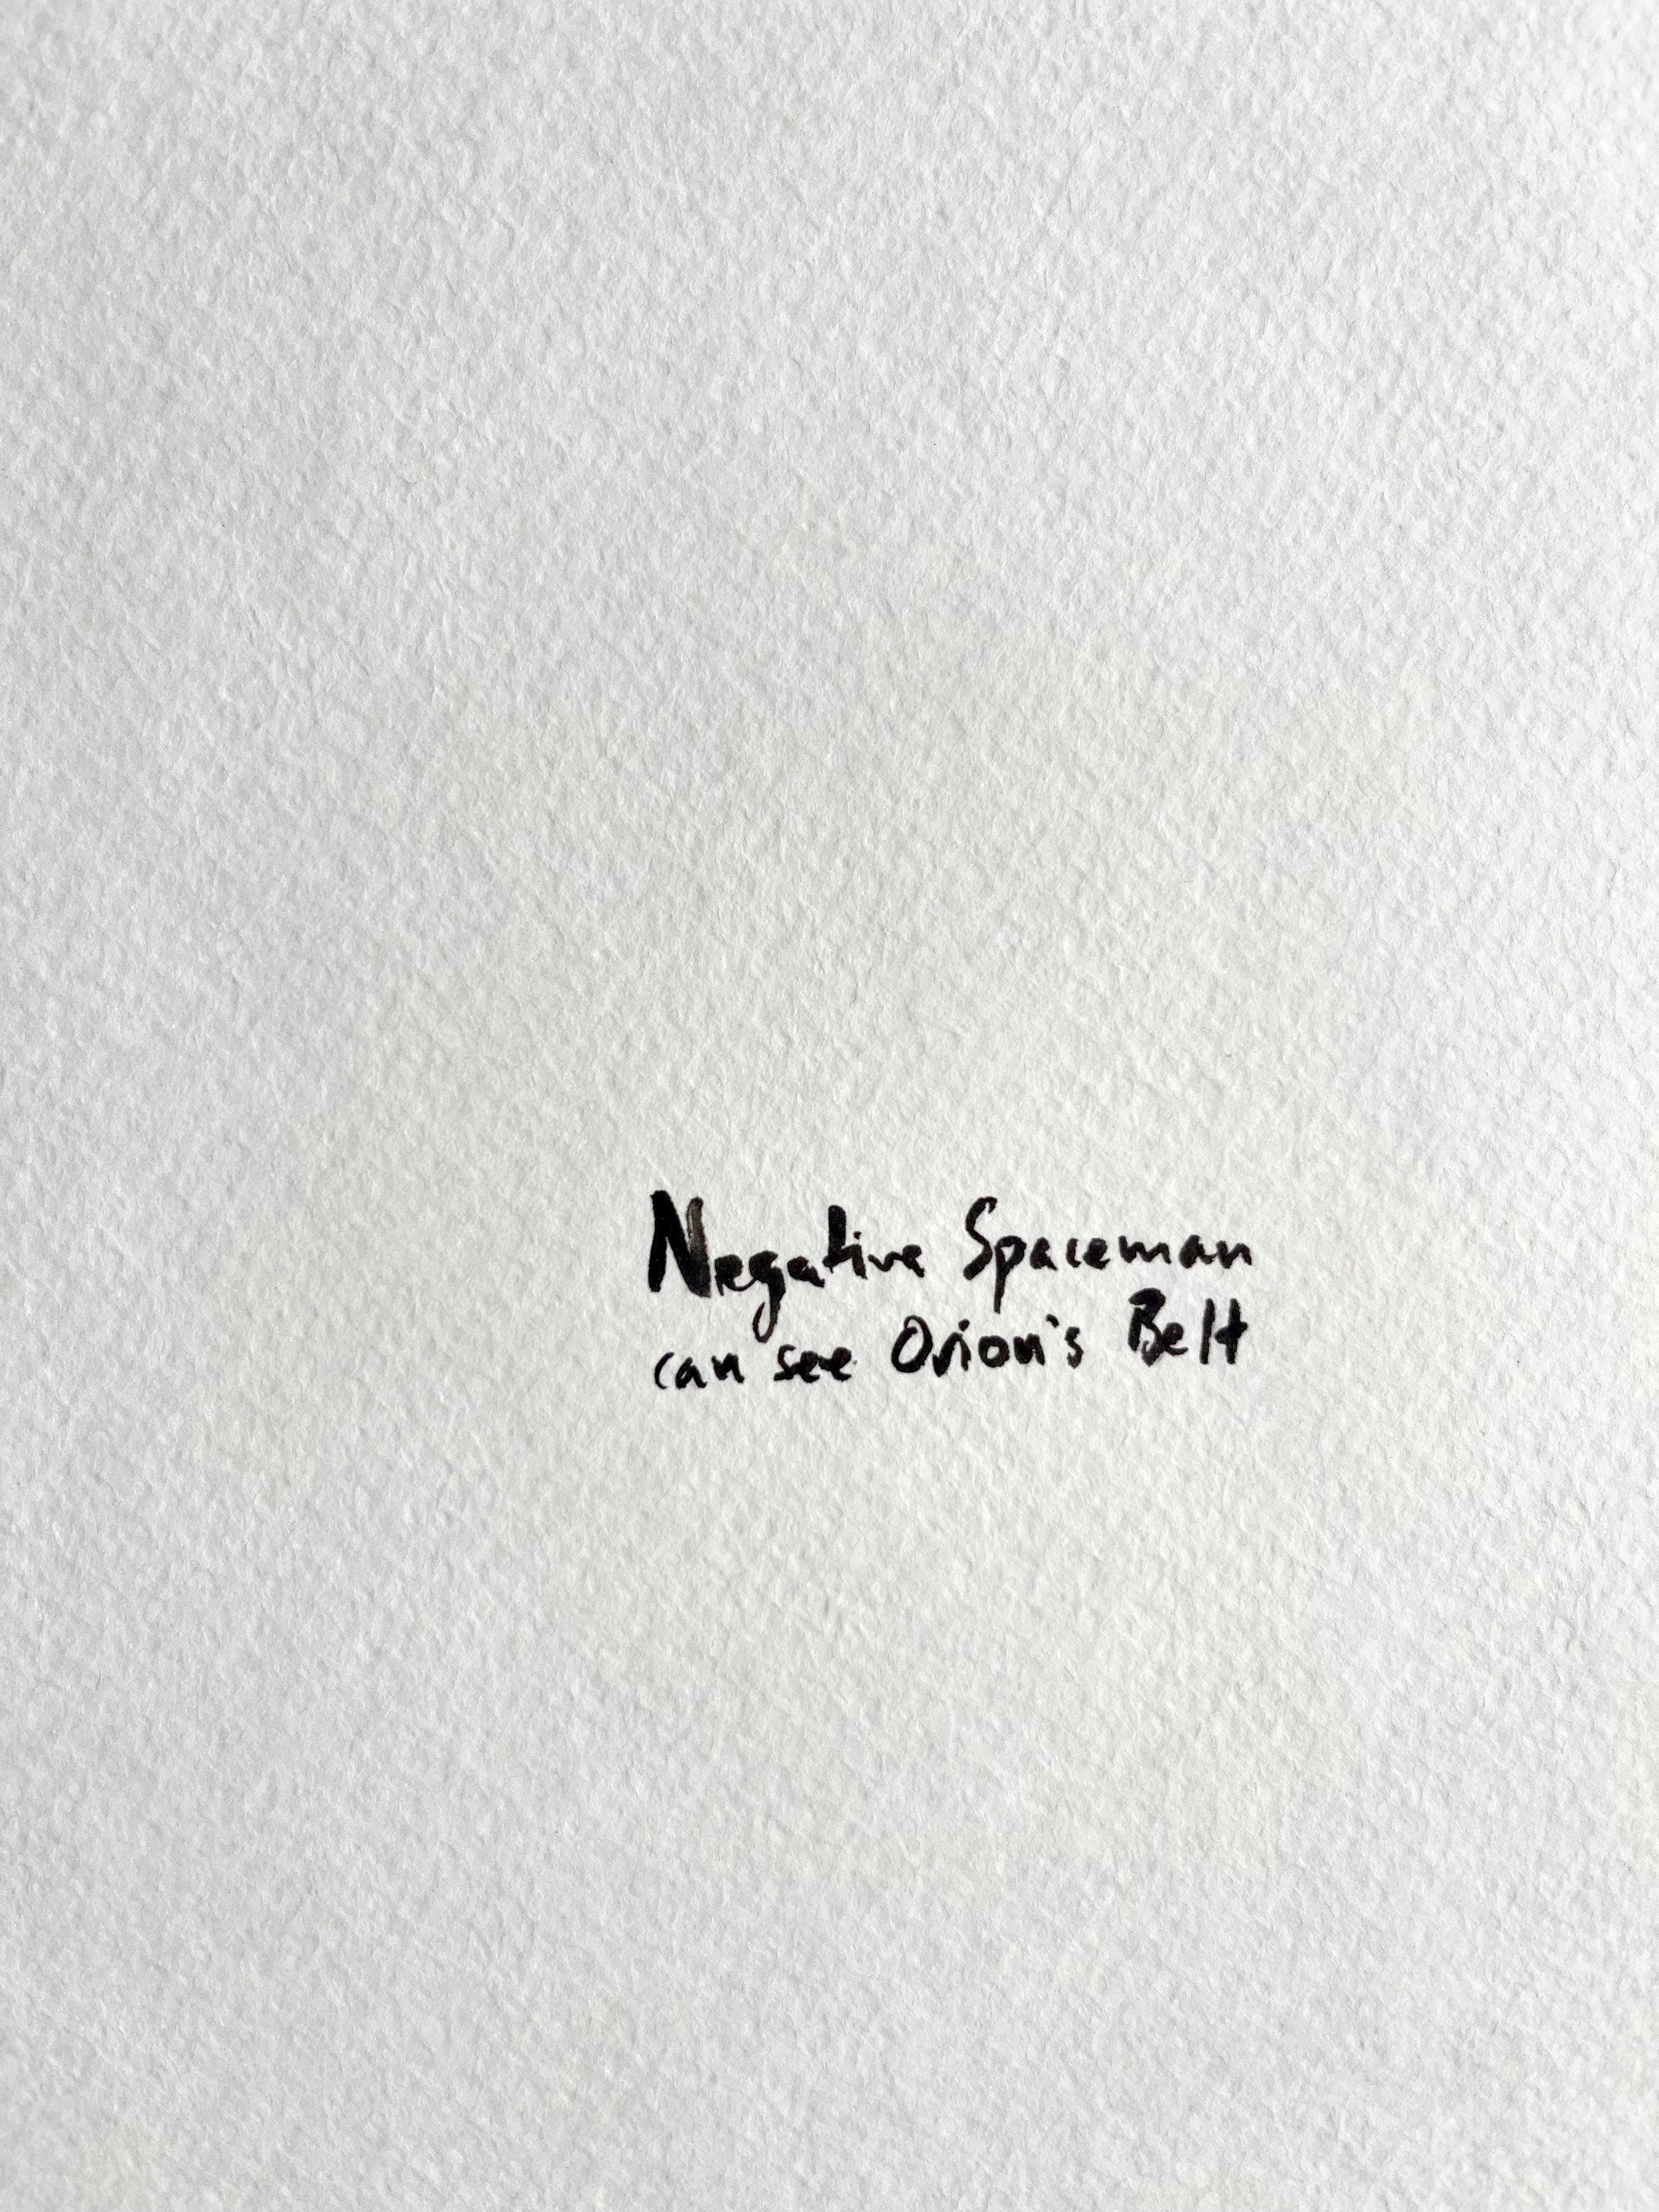 Negative Spaceman
can see Orion's Belt